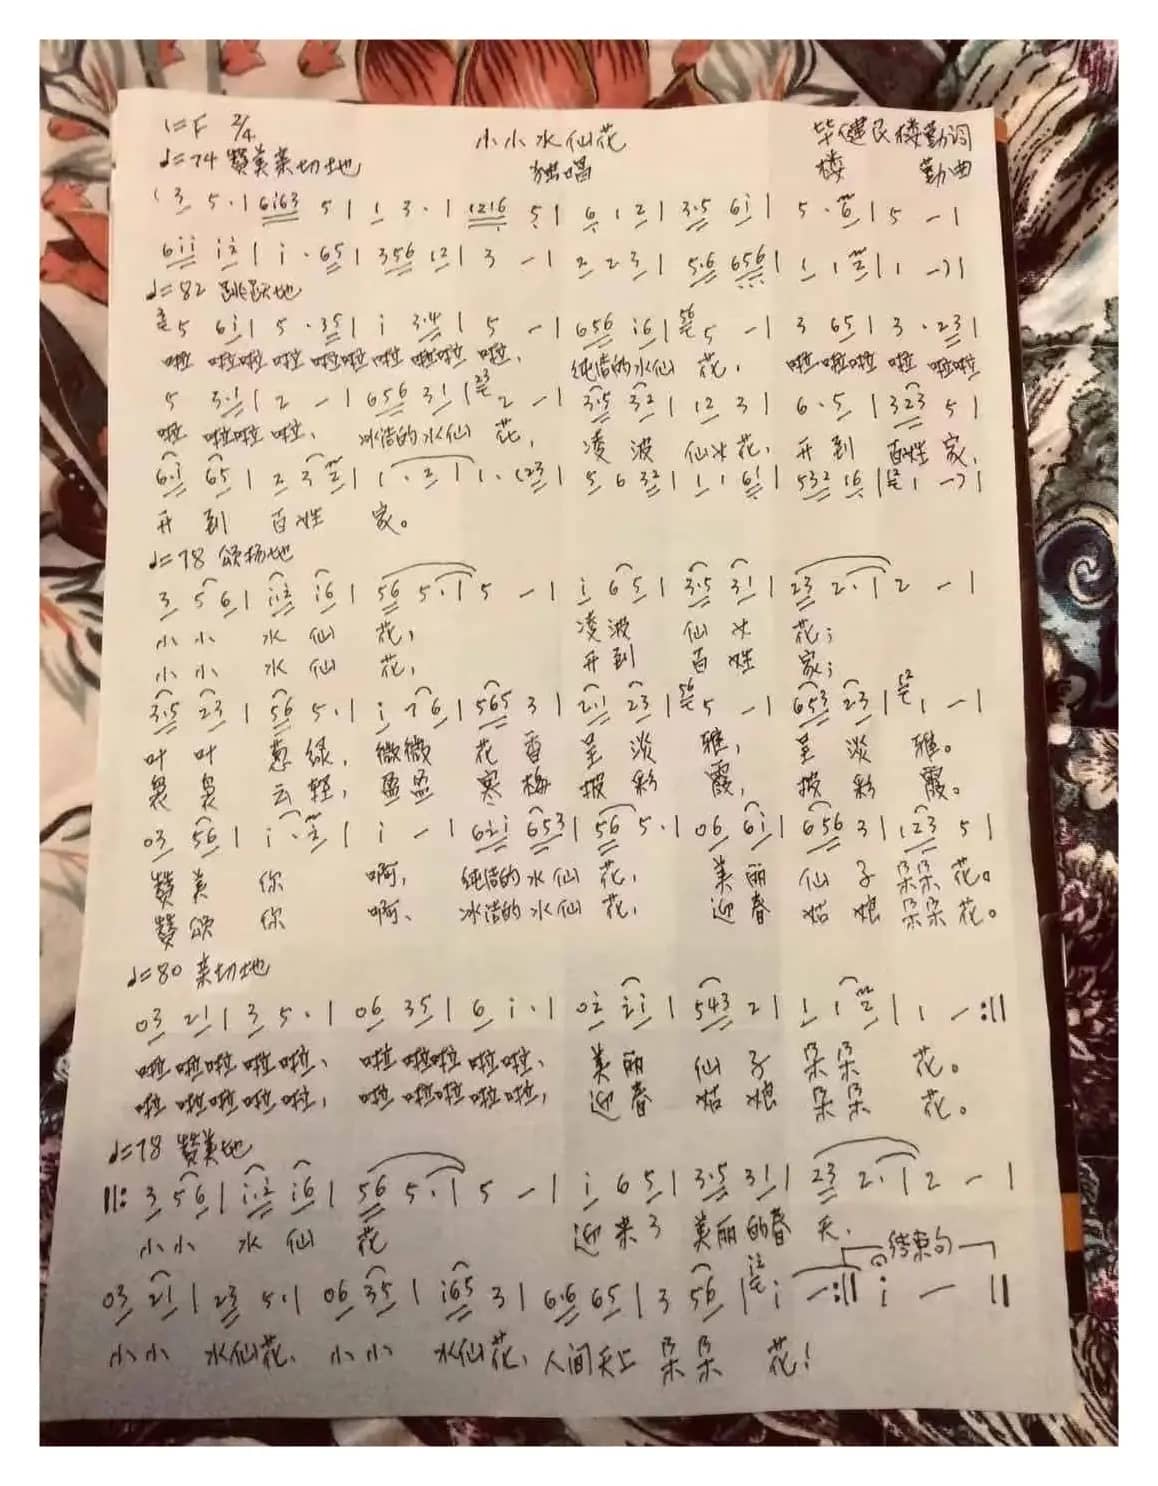 1=F 2/4 小小水仙花 毕健民楼勤词
♩=74 赞美亲切地 独唱 楼 勤曲
(3 5·| 6i63 5| 1 3·| 1216 5| 6 1 2| 3·5 6i| 5·6| 5 -|
6ii i2| i·65| 356 12| 3 -| 2 2 3| 5·6 656| 1 1 2| 1 -)|
♩=82 跳跃地
5 6i| 5·35| i 3·4| 5 -| 656 i6| 56 5 -| 3 65| 3·23|
啦 啦啦 啦 啦啦 啦 啦啦 啦, 纯洁的水仙 花, 啦 啦啦 啦 啦啦
5 3·1| 2 -| 656 31| 23 2 -| 3·5 32| 12 3| 6·5| 323 5|
啦 啦啦 啦, 冰洁的水仙 花, 凌 波 仙女花, 开 到 百姓 家,
6·i 65| 2 3 2| 1·2 1| 1·(23| 5 6 32| 1 1 61| 532 16| 12 1 -)|
开 到 百姓 家。
♩=78 颂扬地
3 5 6| i·2 i6| 56 5·1| 5 -| i 6 5| 3·5 31| 23 2·1| 2 -|
小小 水 仙 花, 凌波 仙 女 花;
小小 水 仙 花, 开到 百 姓 家;
3·5 23| 56 5·| i 7 6| 565 3| 2·1 23| 56 5 -| 653 23| 12 1 -|
叶 叶 葱 绿, 微微 花 香 呈 淡 雅, 呈 淡 雅。
袅 袅 云 轻, 盈盈 寒 梅 披 彩 霞, 披 彩 霞。
03 56| i·2| i -| 62i 653| 56 5·| 06 6i| 656 3| 123 5|
赞 美 你 啊, 纯洁的 水 仙 花, 美 丽 仙 子 朵朵 花。
赞 颂 你 啊, 冰洁的 水 仙 花, 迎 春 姑 娘 朵朵 花。
♩=80 亲切地
03 21| 3 5·| 06 35| 6 i·| 02 2i| 543 2| 1 1 2| 1 -:‖
啦 啦啦 啦 啦, 啦 啦啦 啦 啦, 美 丽 仙 子 朵 朵 花。
啦 啦啦 啦 啦, 啦 啦啦 啦 啦, 迎 春 姑 娘 朵 朵 花。
♩=78 赞美地
‖: 3 5 6| i·2 i6| 56 5·1| 5 -| i 6 5| 3·5 31| 23 2·1| 2 -|
小小 水 仙 花 迎 来了 美丽 的春 天,
结束句
03 21| 23 5·| 06 35| i65 3| 6·6 65| 3 56| i2 i -:‖ i - ‖
小小 水仙花, 小小 水仙花, 人间天上 朵 朵 花!